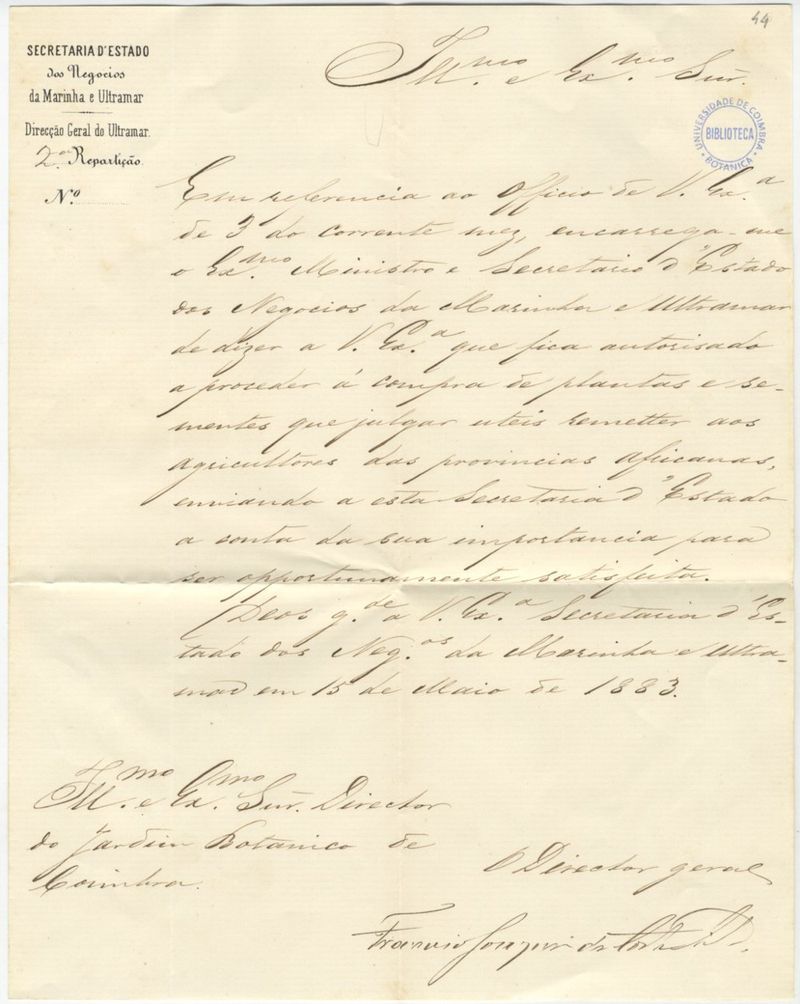 44
SECRETARIA D'ESTADO
dos Negocios
da Marinha e Ultramar
Direcção Geral do Ultramar.
2.ª Repartição.
N.º
Ill.mo e Ex.mo Snr.
UNIVERSIDADE DE COIMBRA
BIBLIOTECA
BOTANICA
Em referencia ao Officio de V. Ex.ª
de 3 do corrente mez, encarrega-me
o Ex.mo Ministro e Secretario d'Estado
dos Negocios da Marinha e Ultramar
de dizer a V. Ex.ª que fica autorisado
a proceder á compra de plantas e se-
mentes que julgar uteis remetter aos
agricultores das provincias africanas,
enviando a esta Secretaria d'Estado
a conta da sua importancia para
ser opportunamente satisfeita.
Deos g.de a V. Ex.ª Secretaria d'Es-
tado dos Neg.os da Marinha e Ultra-
mar em 15 de Maio de 1883.
Ill.mo e Ex.mo Snr. Director
do Jardim Botanico de
Coimbra.
O Director geral
Francisco Joaquim da Costa e Silva